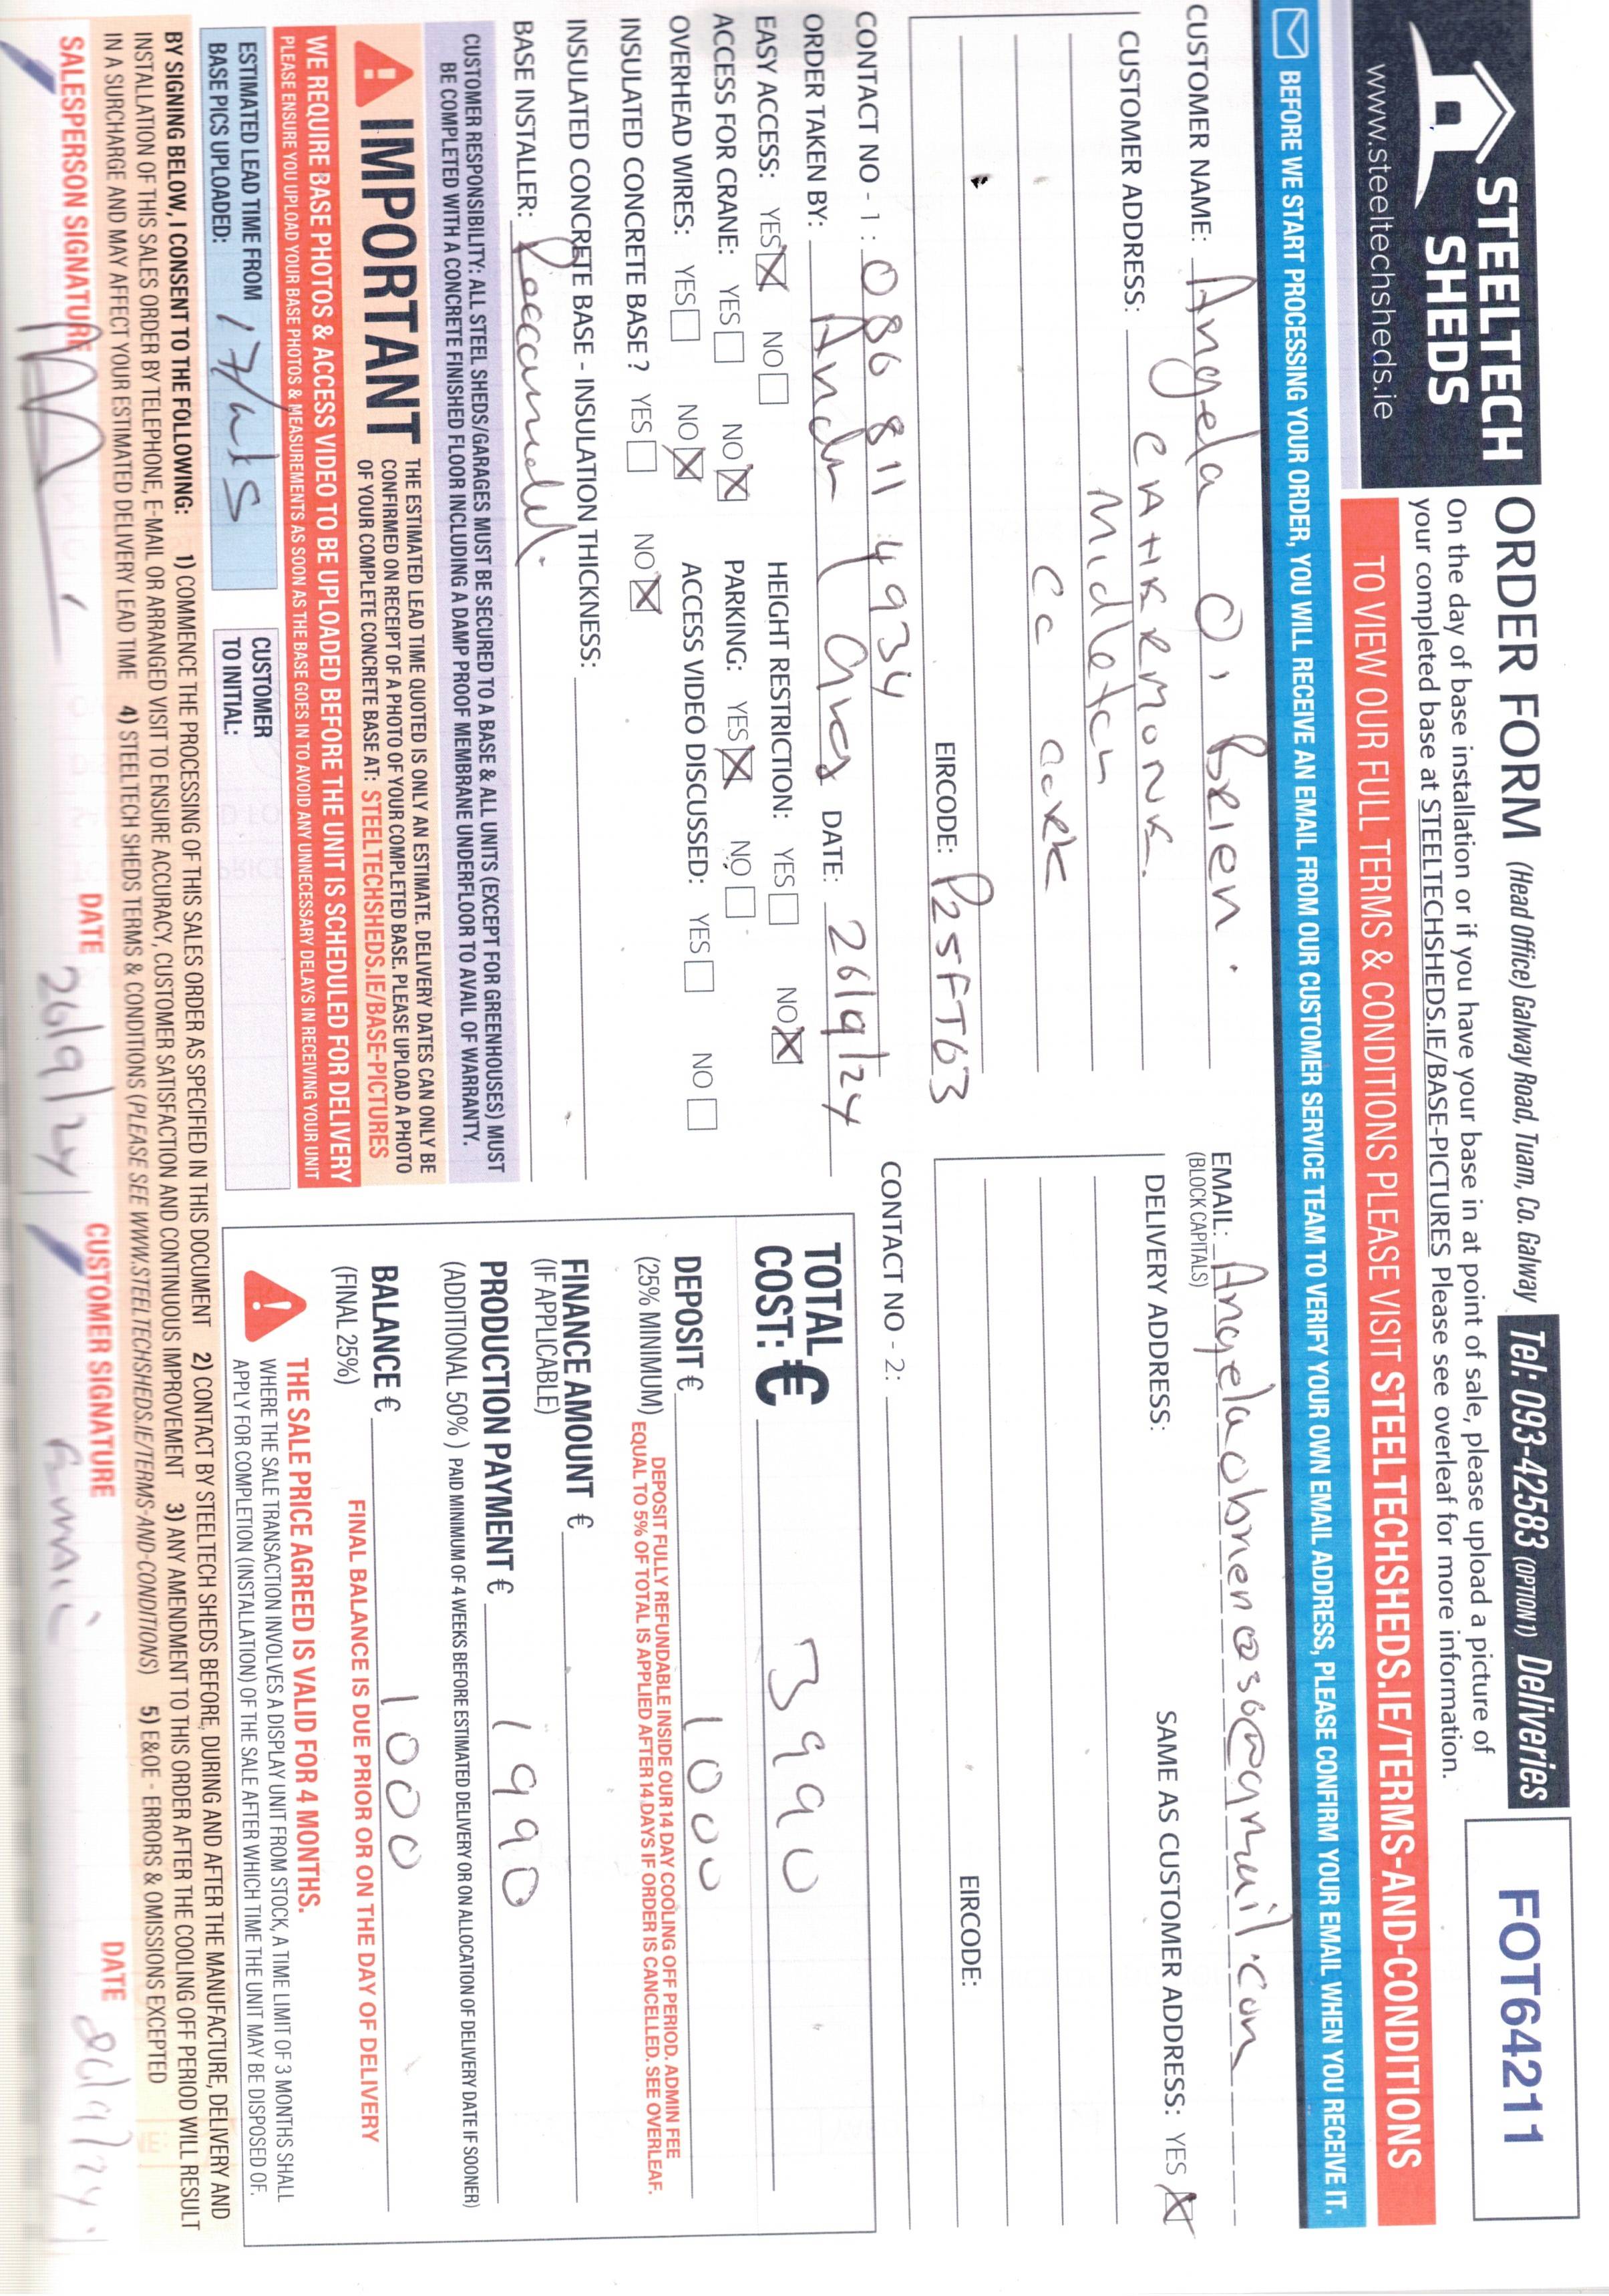 STEELTECH
SHEDS
www.steeltechsheds.ie
ORDER FORM (Head Office) Galway Road, Tuam, Co. Galway
Tel: 093-42583 (OPTION 1) Deliveries
FOT64211
On the day of base installation or if you have your base in at point of sale, please upload a picture of
your completed base at STEELTECHSHEDS.IE/BASE-PICTURES Please see overleaf for more information.
TO VIEW OUR FULL TERMS & CONDITIONS PLEASE VISIT STEELTECHSHEDS.IE/TERMS-AND-CONDITIONS
BEFORE WE START PROCESSING YOUR ORDER, YOU WILL RECEIVE AN EMAIL FROM OUR CUSTOMER SERVICE TEAM TO VERIFY YOUR OWN EMAIL ADDRESS, PLEASE CONFIRM YOUR EMAIL WHEN YOU RECEIVE IT.
CUSTOMER NAME: Angela O'Brien.
CUSTOMER ADDRESS:
Midleton
Co Cork
EIRCODE: P25FT63
CONTACT NO - 1: 086 811 4934
ORDER TAKEN BY: DATE: 26/9/24
EASY ACCESS: YES NO
HEIGHT RESTRICTION: YES NO
ACCESS FOR CRANE: YES NO
PARKING: YES NO
OVERHEAD WIRES: YES NO
ACCESS VIDEO DISCUSSED: YES NO
INSULATED CONCRETE BASE? YES NO
INSULATED CONCRETE BASE - INSULATION THICKNESS:
BASE INSTALLER:
EMAIL:
(BLOCK CAPITALS)
DELIVERY ADDRESS: SAME AS CUSTOMER ADDRESS: YES
EIRCODE:
CONTACT NO - 2:
CUSTOMER RESPONSIBILITY: ALL STEEL SHEDS/GARAGES MUST BE SECURED TO A BASE & ALL UNITS (EXCEPT FOR GREENHOUSES) MUST
BE COMPLETED WITH A CONCRETE FINISHED FLOOR INCLUDING A DAMP PROOF MEMBRANE UNDERFLOOR TO AVAIL OF WARRANTY.
IMPORTANT
THE ESTIMATED LEAD TIME QUOTED IS ONLY AN ESTIMATE. DELIVERY DATES CAN ONLY BE
CONFIRMED ON RECEIPT OF A PHOTO OF YOUR COMPLETED BASE. PLEASE UPLOAD A PHOTO
OF YOUR COMPLETE CONCRETE BASE AT: STEELTECHSHEDS.IE/BASE-PICTURES
WE REQUIRE BASE PHOTOS & ACCESS VIDEO TO BE UPLOADED BEFORE THE UNIT IS SCHEDULED FOR DELIVERY
PLEASE ENSURE YOU UPLOAD YOUR BASE PHOTOS & MEASUREMENTS AS SOON AS THE BASE GOES IN TO AVOID ANY UNNECESSARY DELAYS IN RECEIVING YOUR UNIT
ESTIMATED LEAD TIME FROM
BASE PICS UPLOADED:
CUSTOMER
TO INITIAL:
TOTAL
COST: € 3990
DEPOSIT € 1000
(25% MINIMUM)
DEPOSIT FULLY REFUNDABLE INSIDE OUR 14 DAY COOLING OFF PERIOD. ADMIN FEE
EQUAL TO 5% OF TOTAL IS APPLIED AFTER 14 DAYS IF ORDER IS CANCELLED. SEE OVERLEAF.
FINANCE AMOUNT €
(IF APPLICABLE)
PRODUCTION PAYMENT € 1990
(ADDITIONAL 50%) PAID MINIMUM OF 4 WEEKS BEFORE ESTIMATED DELIVERY OR ON ALLOCATION OF DELIVERY DATE IF SOONER)
BALANCE € 1000
(FINAL 25%)
FINAL BALANCE IS DUE PRIOR OR ON THE DAY OF DELIVERY
THE SALE PRICE AGREED IS VALID FOR 4 MONTHS.
WHERE THE SALE TRANSACTION INVOLVES A DISPLAY UNIT FROM STOCK, A TIME LIMIT OF 3 MONTHS SHALL
APPLY FOR COMPLETION (INSTALLATION) OF THE SALE AFTER WHICH TIME THE UNIT MAY BE DISPOSED OF.
BY SIGNING BELOW, I CONSENT TO THE FOLLOWING: 1) COMMENCE THE PROCESSING OF THIS SALES ORDER AS SPECIFIED IN THIS DOCUMENT 2) CONTACT BY STEELTECH SHEDS BEFORE, DURING AND AFTER THE MANUFACTURE, DELIVERY AND
INSTALLATION OF THIS SALES ORDER BY TELEPHONE, E-MAIL OR ARRANGED VISIT TO ENSURE ACCURACY, CUSTOMER SATISFACTION AND CONTINUOUS IMPROVEMENT 3) ANY AMENDMENT TO THIS ORDER AFTER THE COOLING OFF PERIOD WILL RESULT
IN A SURCHARGE AND MAY AFFECT YOUR ESTIMATED DELIVERY LEAD TIME 4) STEELTECH SHEDS TERMS & CONDITIONS (PLEASE SEE WWW.STEELTECHSHEDS.IE/TERMS-AND-CONDITIONS) 5) E&OE - ERRORS & OMISSIONS EXCEPTED
SALESPERSON SIGNATURE DATE 26/9/24 CUSTOMER SIGNATURE DATE